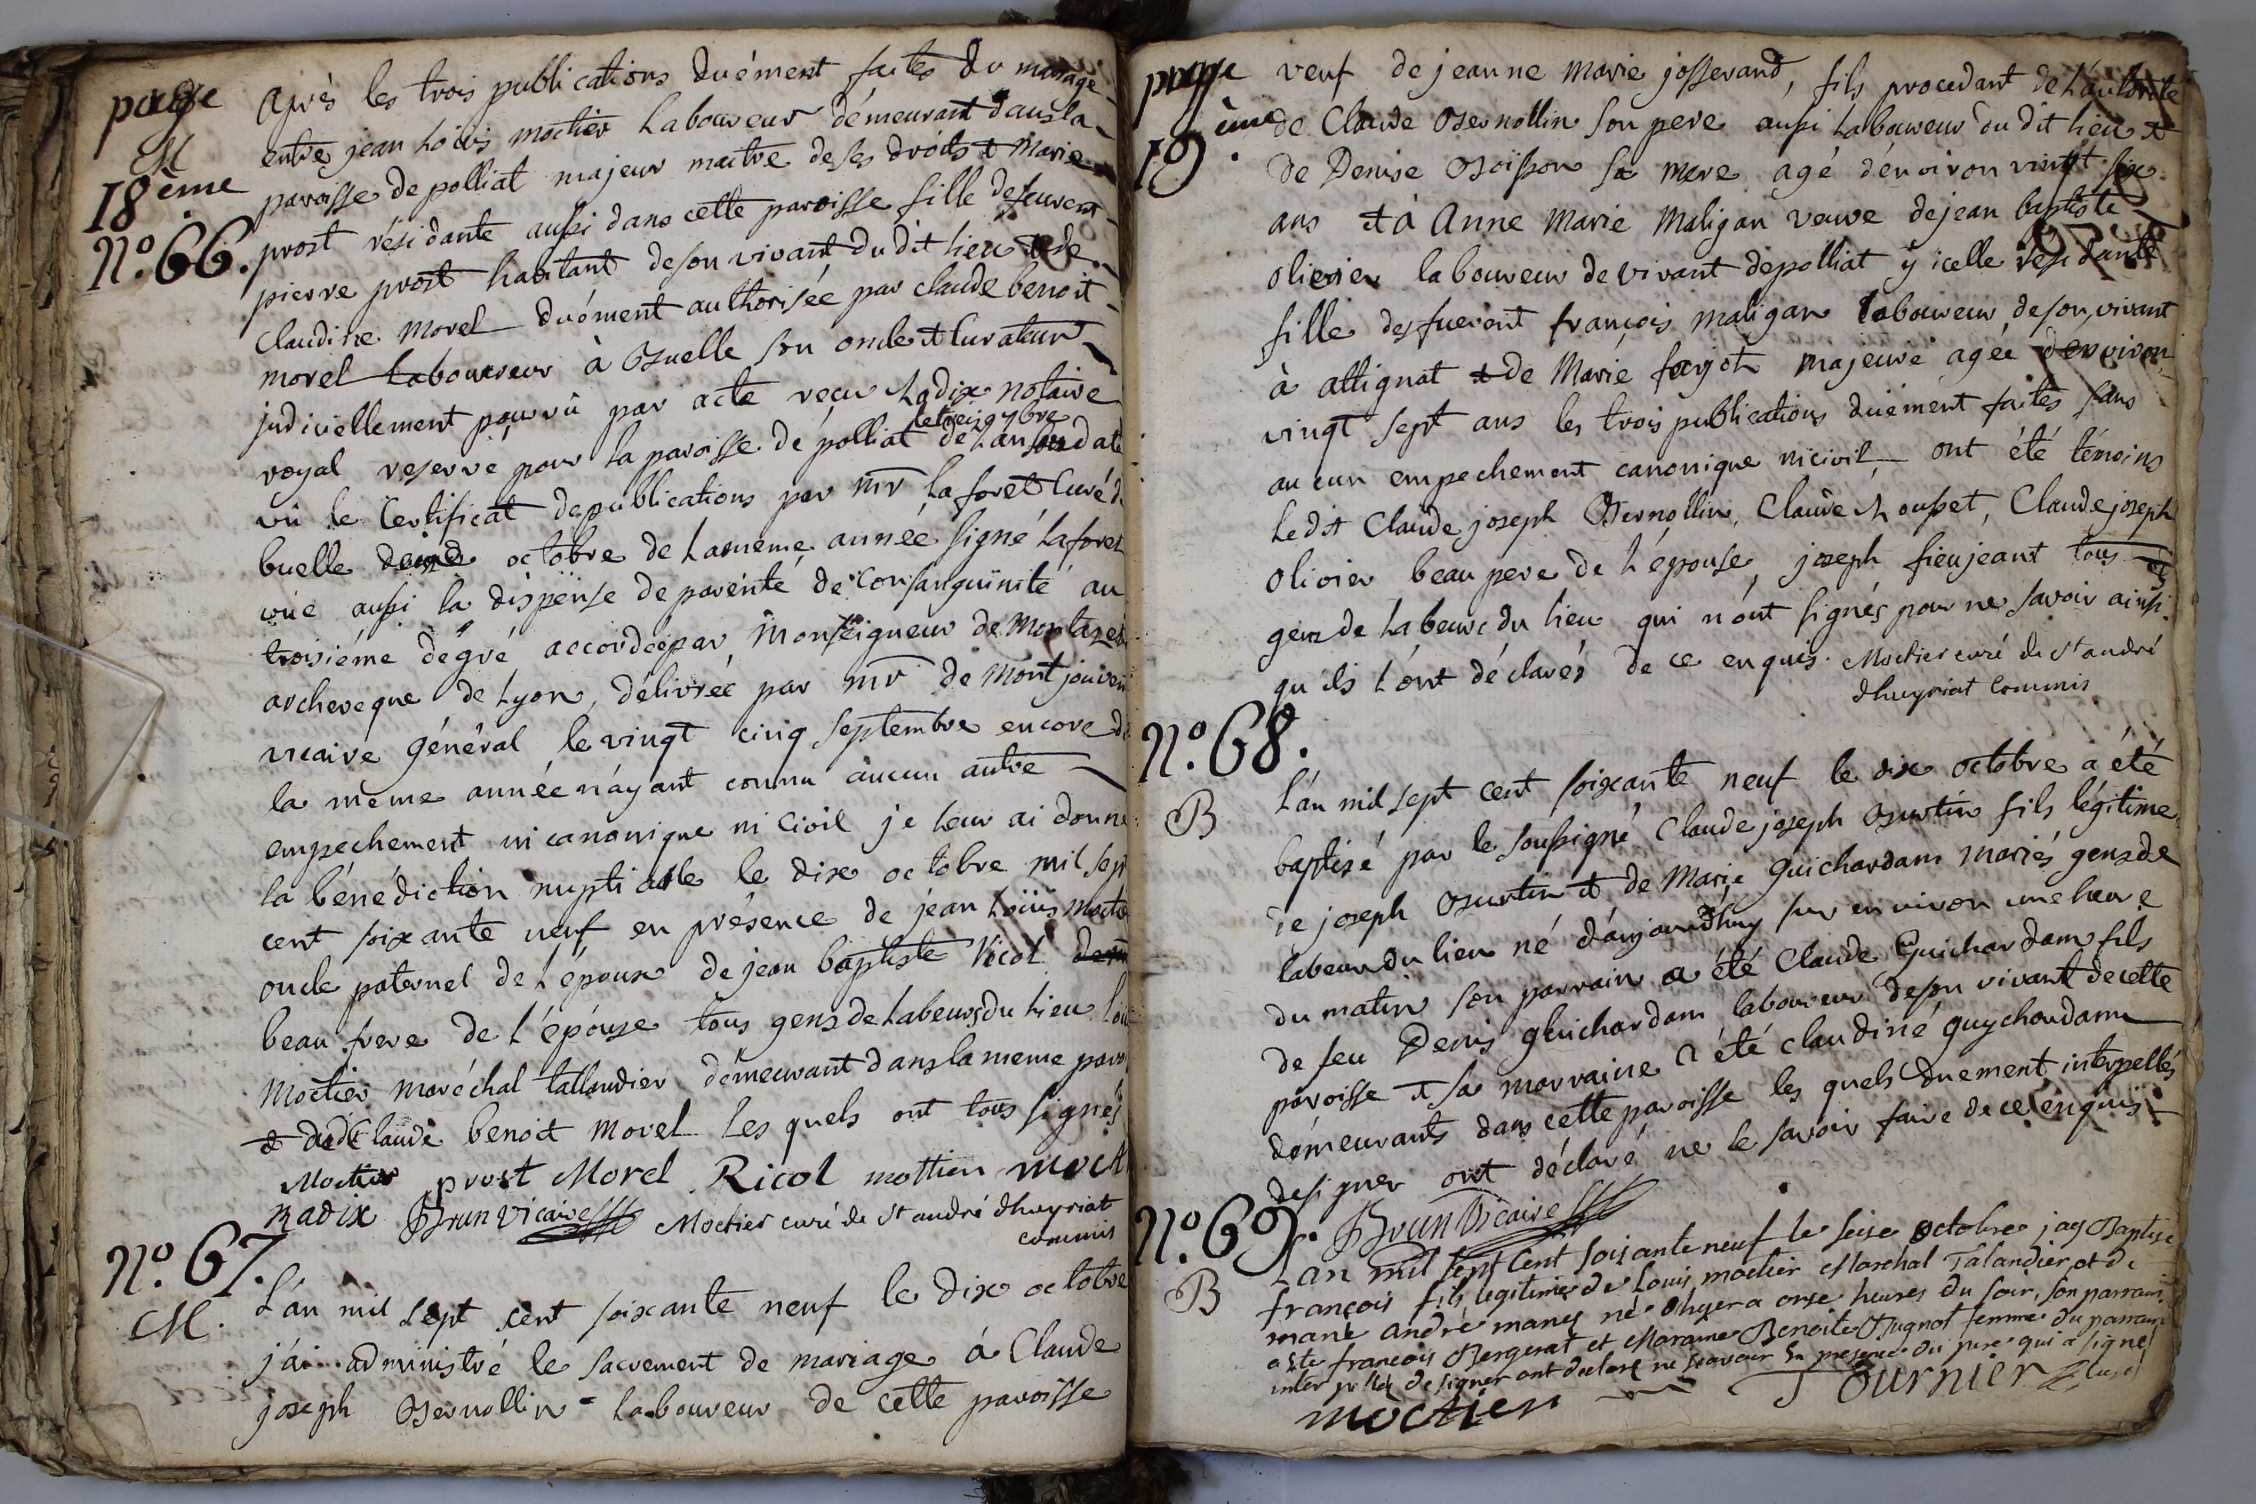 page
18ème
M
N.º 66.
Après les trois publications duément faites du mariage
entre jean Loüis moctier Laboureur démeurant dans la
paroisse de polliat majeur maitre de ses droits & Marie
prost résidante aussi dans cette paroisse fille de feu vent
pierre prost habitant de son vivant du dit lieu & de
Claudine Morel duément authorisée par claude benoit
morel Laboureur à Buelle son oncle & Curateur
judiciellement pourvû par acte recu Radix notaire
royal reservé pour la paroisse de polliat de L'an
vû le Certificat de publications par mr Laforet Curé de
buelle octobre de La même année signé Laforet
vüe aussi la dispense de parénté de Consanguïnité au
troisiéme dégré accordée par Monseigneur de Montazet
archeveque de Lyon, délivrée par mr de Montjouvent
vicaire général le vingt cinq septembre encore de
la même année n'ayant connu aucun autre
empechement ni canonique ni Civil je leur ai donné
la bénédiction nuptialle le dix octobre mil sept
cent soixante neuf en présence de jean Loüis moctier
oncle paternel de L'époux de jean baptiste Ricol
beau frere de L'épouse tous gens de Labeurs du Lieu
Moctier maréchal tallandier démeurant dans la meme
& dudt Claude benoit Morel Les quels ont tous signés
Moctier prost Morel Ricol mottier moct
Radix Brun Vicaire Moctier curé de St andré dhuyriat
commis
N.º 67.
M.
L'an mil sept cent soixante neuf le dix octobre
j'ai administré le sacrement de mariage á Claude
joseph Bernollin Laboureur de cette paroisse
page
19.ème
veuf de jeanne Marie josserand, fils procedant de L'autorité
de Claude Bernollin son pere aussi Laboureur du dit lieu &
de Denise Boisson sa mere agé d'environ vingt six
ans & à Anne Marie Maligan veuve de jean baptiste
olivier laboureur de vivant de polliat y icelle résidante
fille des fuerent françois maligan laboureur de son vivant
à attignat & de Marie farjot majeure agée d'environ
vingt sept ans les trois publications duëment faites sans
aucun empechement canonique ni civil ont été témoins
Ledit Claude joseph Bernollin, Claude Chousset, Claude joseph
olivier beau pere de L'épouse, joseph fieujeant tous
gens de Labeurs du lieu qui n'ont signés pour ne savoir ainsi
qu'ils L'ont déclarés de ce enquis. Moctier curé de St andré
dhuyriat Commis
N.º 68.
B
L'an mil sept cent soixante neuf le dix octobre a été
baptisé par le soussigné Claude joseph Burtin fils légitime
de joseph Burtin & de Marie Guichardam mariés gens de
labeurs du lieu né d'aujourdhuy sur environ une heure
du matin son parrain a été Claude Guichardam fils
de feu Denis guichardam laboureur de son vivant de cette
paroisse & sa marraine a été claudine guychardam
démeurants dans cette paroisse les quels duement interpellés
de signer ont déclaré ne le savoir faire de ce enquis
Brun Vicaire
N.º 69.
B
Lan mil sept Cent soisante neuf le seise octobre jay Baptisé
françois fils legitime de Louis moctier Marechal Talandier et de
marie andré mariez né dhyer a onse heures du soir, son parrain
a ete francois Bergerat et Maraine Benoite Bugnot femme du parrain
interpellez de signer ont declaré ne sçavoir En presence du pere qui a signé
moctier Fournier Curé